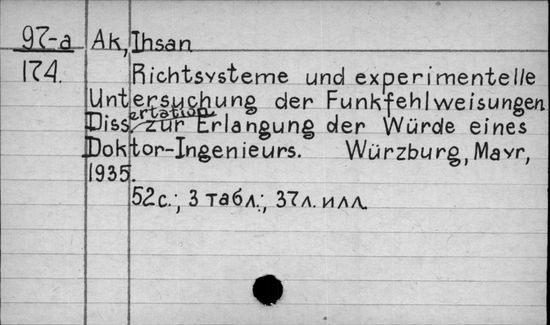 97-a Ak, Ihsan
174.
Richtsysteme und experimentelle
Untersuchung der Funkfehlweisungen
Dissertation zur Erlangung der Würde eines
Doktor-Ingenieurs. Würzburg, Mayr,
1935.
52с.; 3 табл.; 37л. илл.